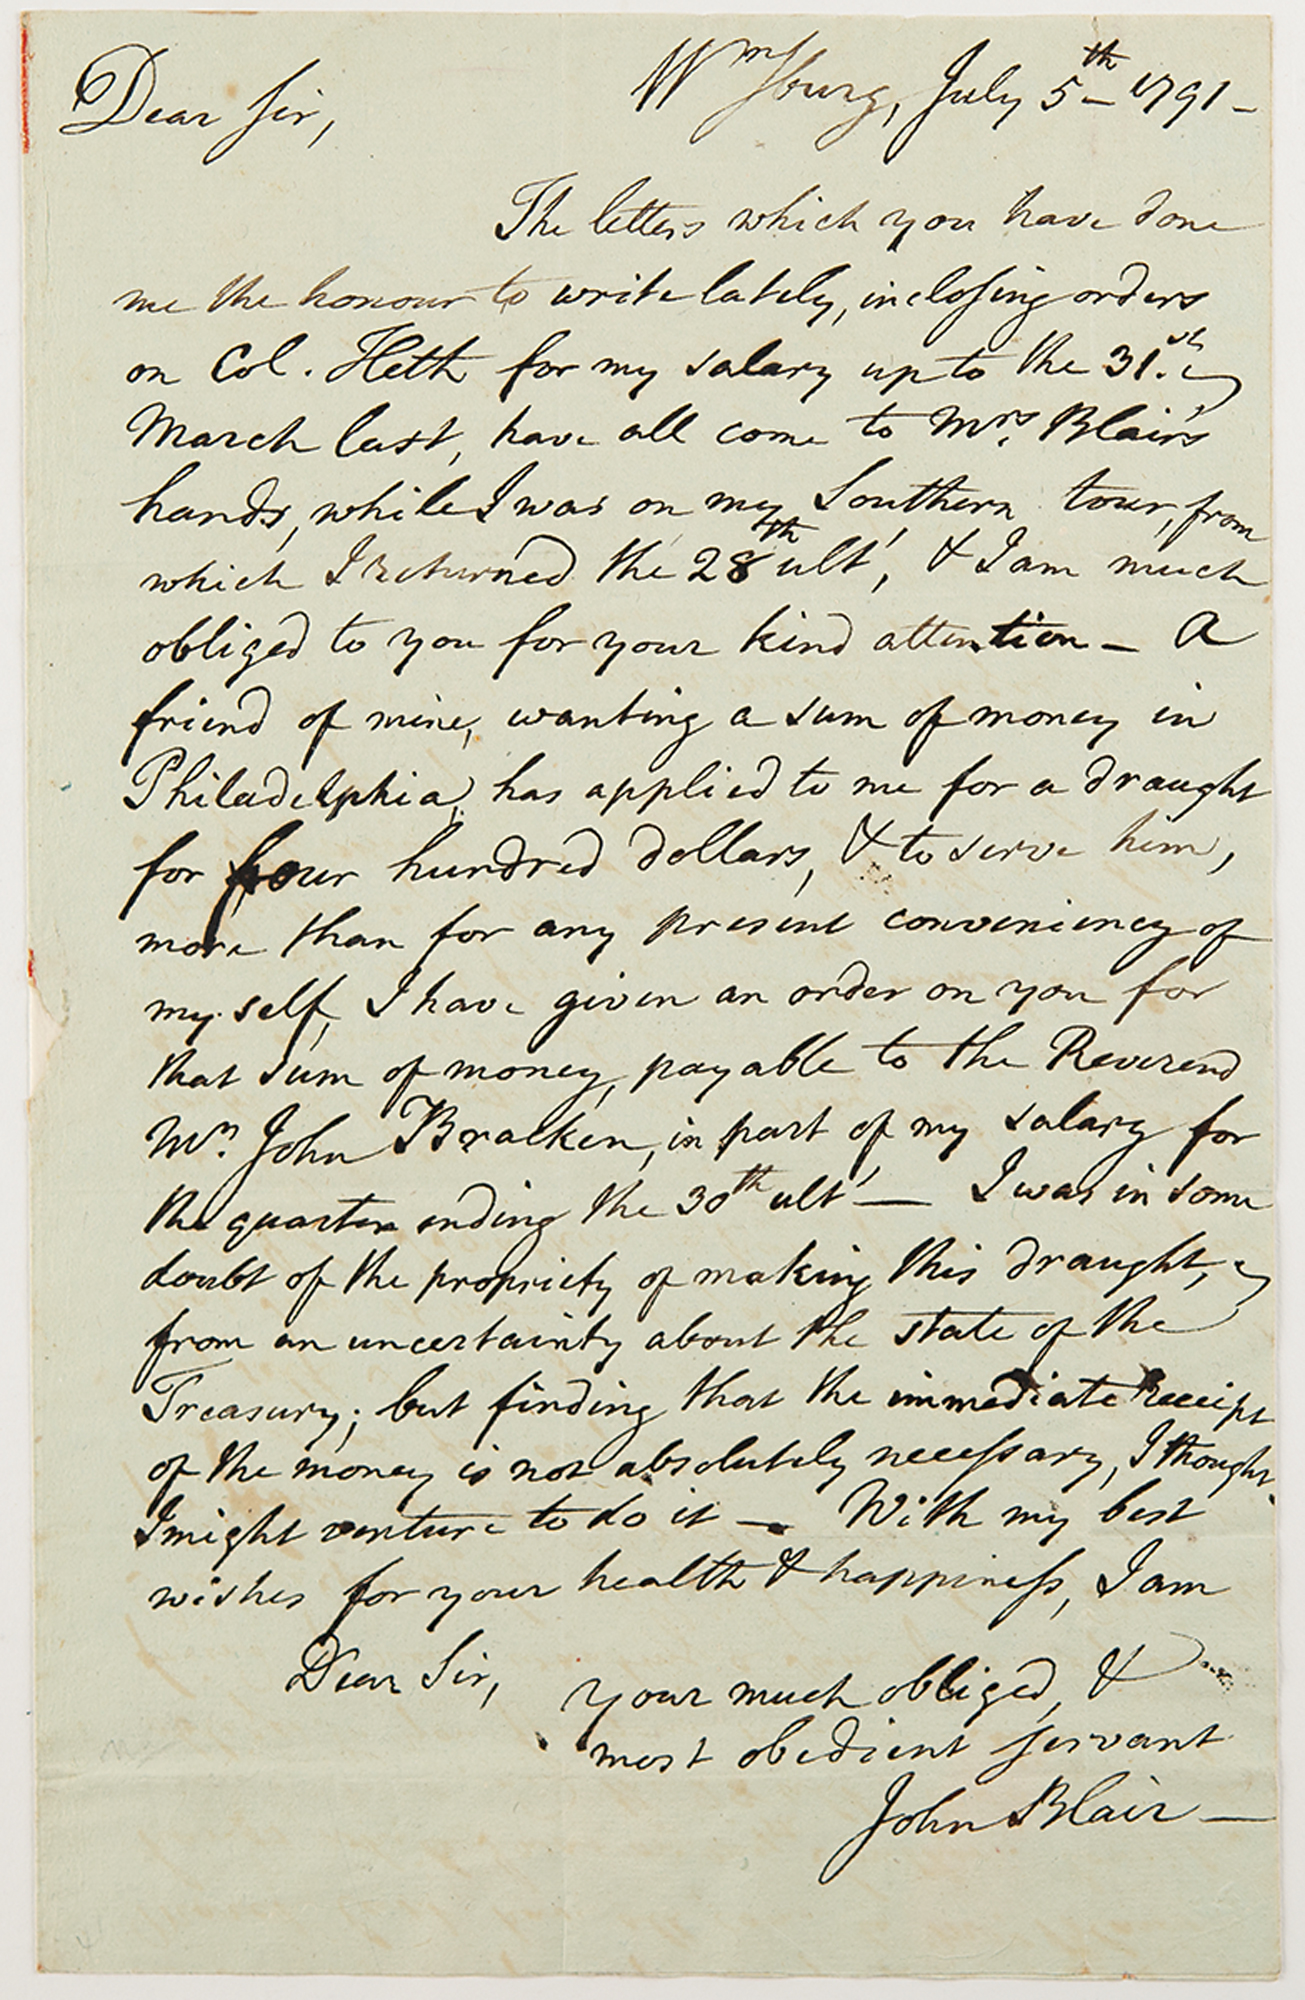 Wmsburg, July 5th 1791 -
Dear Sir,
The letters which you have done
me the honour to write lately, inclosing orders
on Col. Heth for my salary up to the 31.st
March last, have all come to Mrs. Blair's
hands, while I was on my Southern tour, from
which I returned the 28th ult', & I am much
obliged to you for your kind attention - A
friend of mine, wanting a sum of money in
Philadelphia, has applied to me for a draught
for four hundred dollars, & to serve him,
more than for any present conveniency of
my self, I have given an order on you for
that sum of money, payable to the Reverend
Mr. John Bracken, in part of my salary for
the quarter ending the 30th ult' — I was in some
doubt of the propriety of making this draught,
from an uncertainty about the state of the
Treasury; but finding that the immediate Receipt
of the money is not absolutely necessary, I thought
I might venture to do it — With my best
wishes for your health & happiness, I am
Dear Sir,
your much obliged, &
most obedient servant
John Blair —